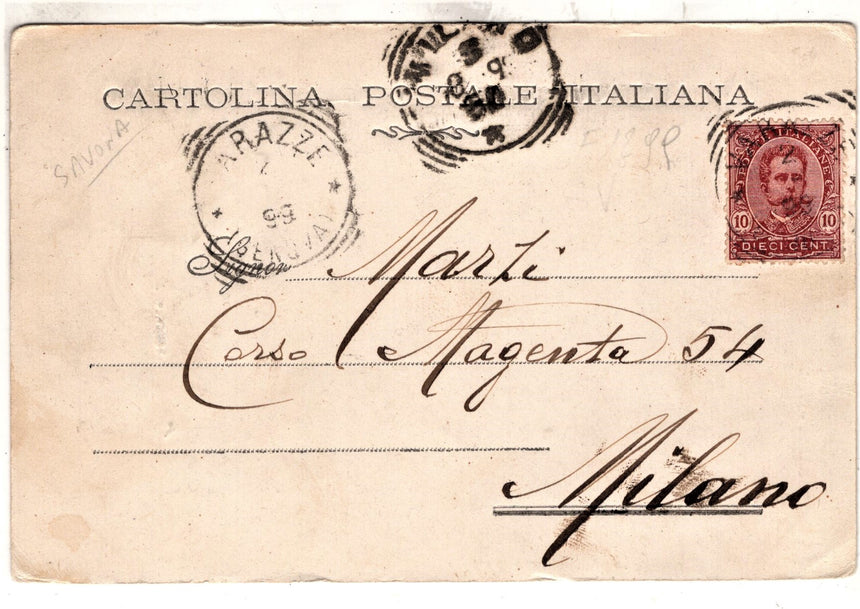 MILANO
9
CARTOLINA POSTALE ITALIANA
SAVONA
ARAZZE
99
(GENOVA)
POSTE ITALIANE
2
10 10
DIECI CENT.
Signor Marzi
Corso Magenta 54
Milano